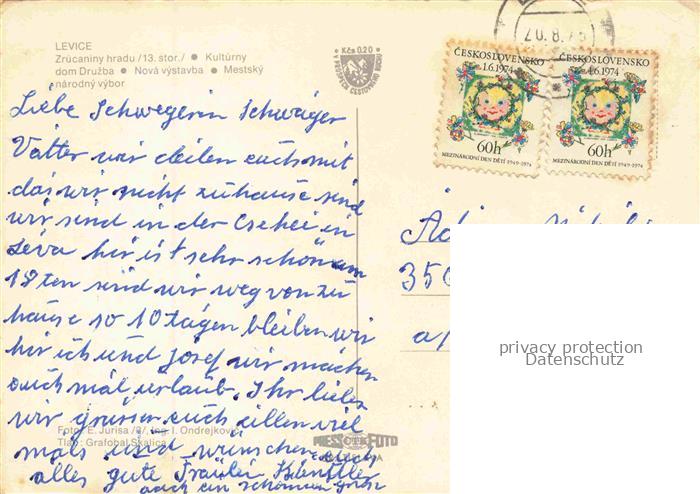 LEVICE
Zrúcaniny hradu /13. stor./ ● Kultúrny
dom Družba ● Nová výstavba ● Mestský
národný výbor
Kčs 0,20
20.8.7
ČESKOSLOVENSKO
1.6.1974
60h
MEZINÁRODNÍ DEN DĚTÍ 1949-1974
ČESKOSLOVENSKO
1.6.1974
60h
MEZINÁRODNÍ DEN DĚTÍ 1949-1974
Liebe Schwegerin Schwaiger
Vatter wir deilen euch mit
das wir nicht zuhause sind
wir sind in der Csehei in
Léva hir ist sehr schön am
18 ten sind wir weg von zu
hause so 10 tägen bleiben wir
hir ich und Josef wir machen
auch mal urlaub. Ihr liebes
wir grüssen euch allen viel
mals und wünschen euch
alles gute
auch ein schönen
Foto: E. Jurisa /8/, Ing. I. Ondrejkovič
Tlač: Grafobal Skalica
PRESSFOTO
privacy protection
Datenschutz